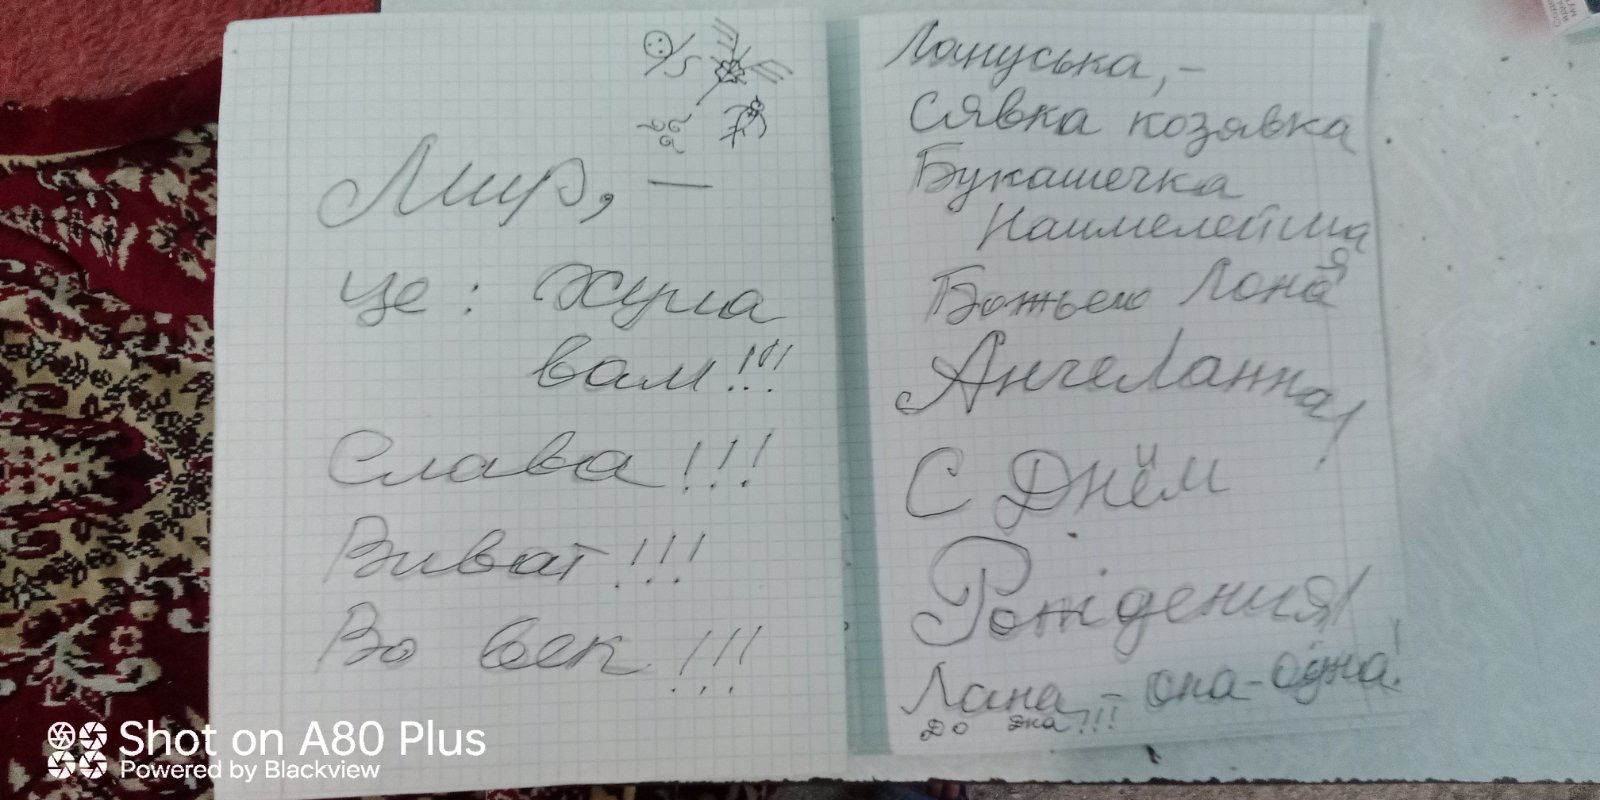 Мир, —
це: хула
вам!!!
Слава!!!
Виват!!!
Во век!!!
Лануська, –
Сявка козявка
Букашечка
Наимелейша
я
Божью Лона
АнгеЛанна!
С Днём
Рождения!
Лана – она-одна!
До дна!!!
Shot on A80 Plus
Powered by Blackview